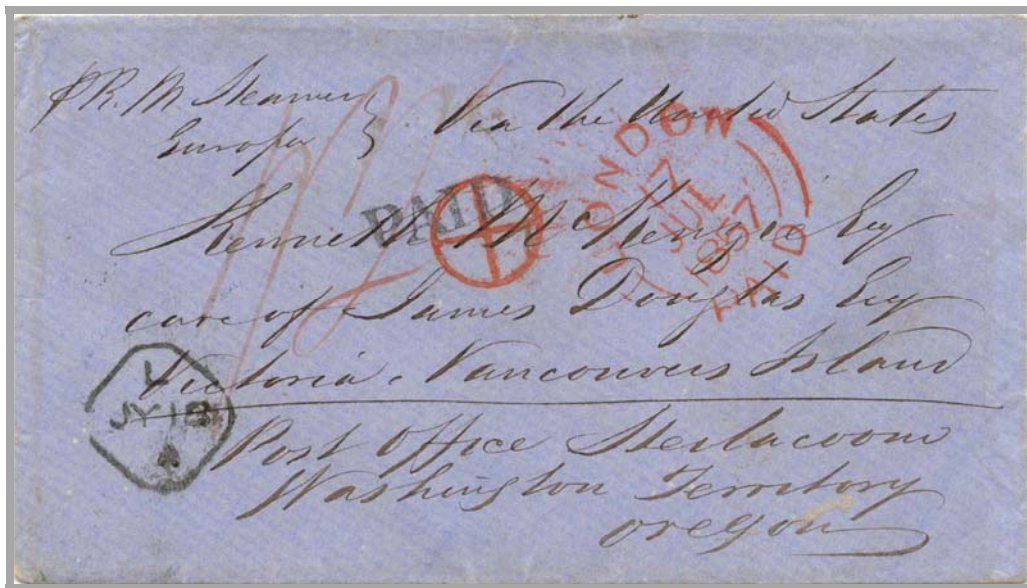 PR. M Steamer
Europa
Via the United States
PAID
LONDON
17
JUL
1857
PAID
Kenneth McKenzie Esq
care of James Douglas Esq
Victoria. Vancouvers Island
Post Office Steilacoom
Washington Territory
Oregon
JY 18